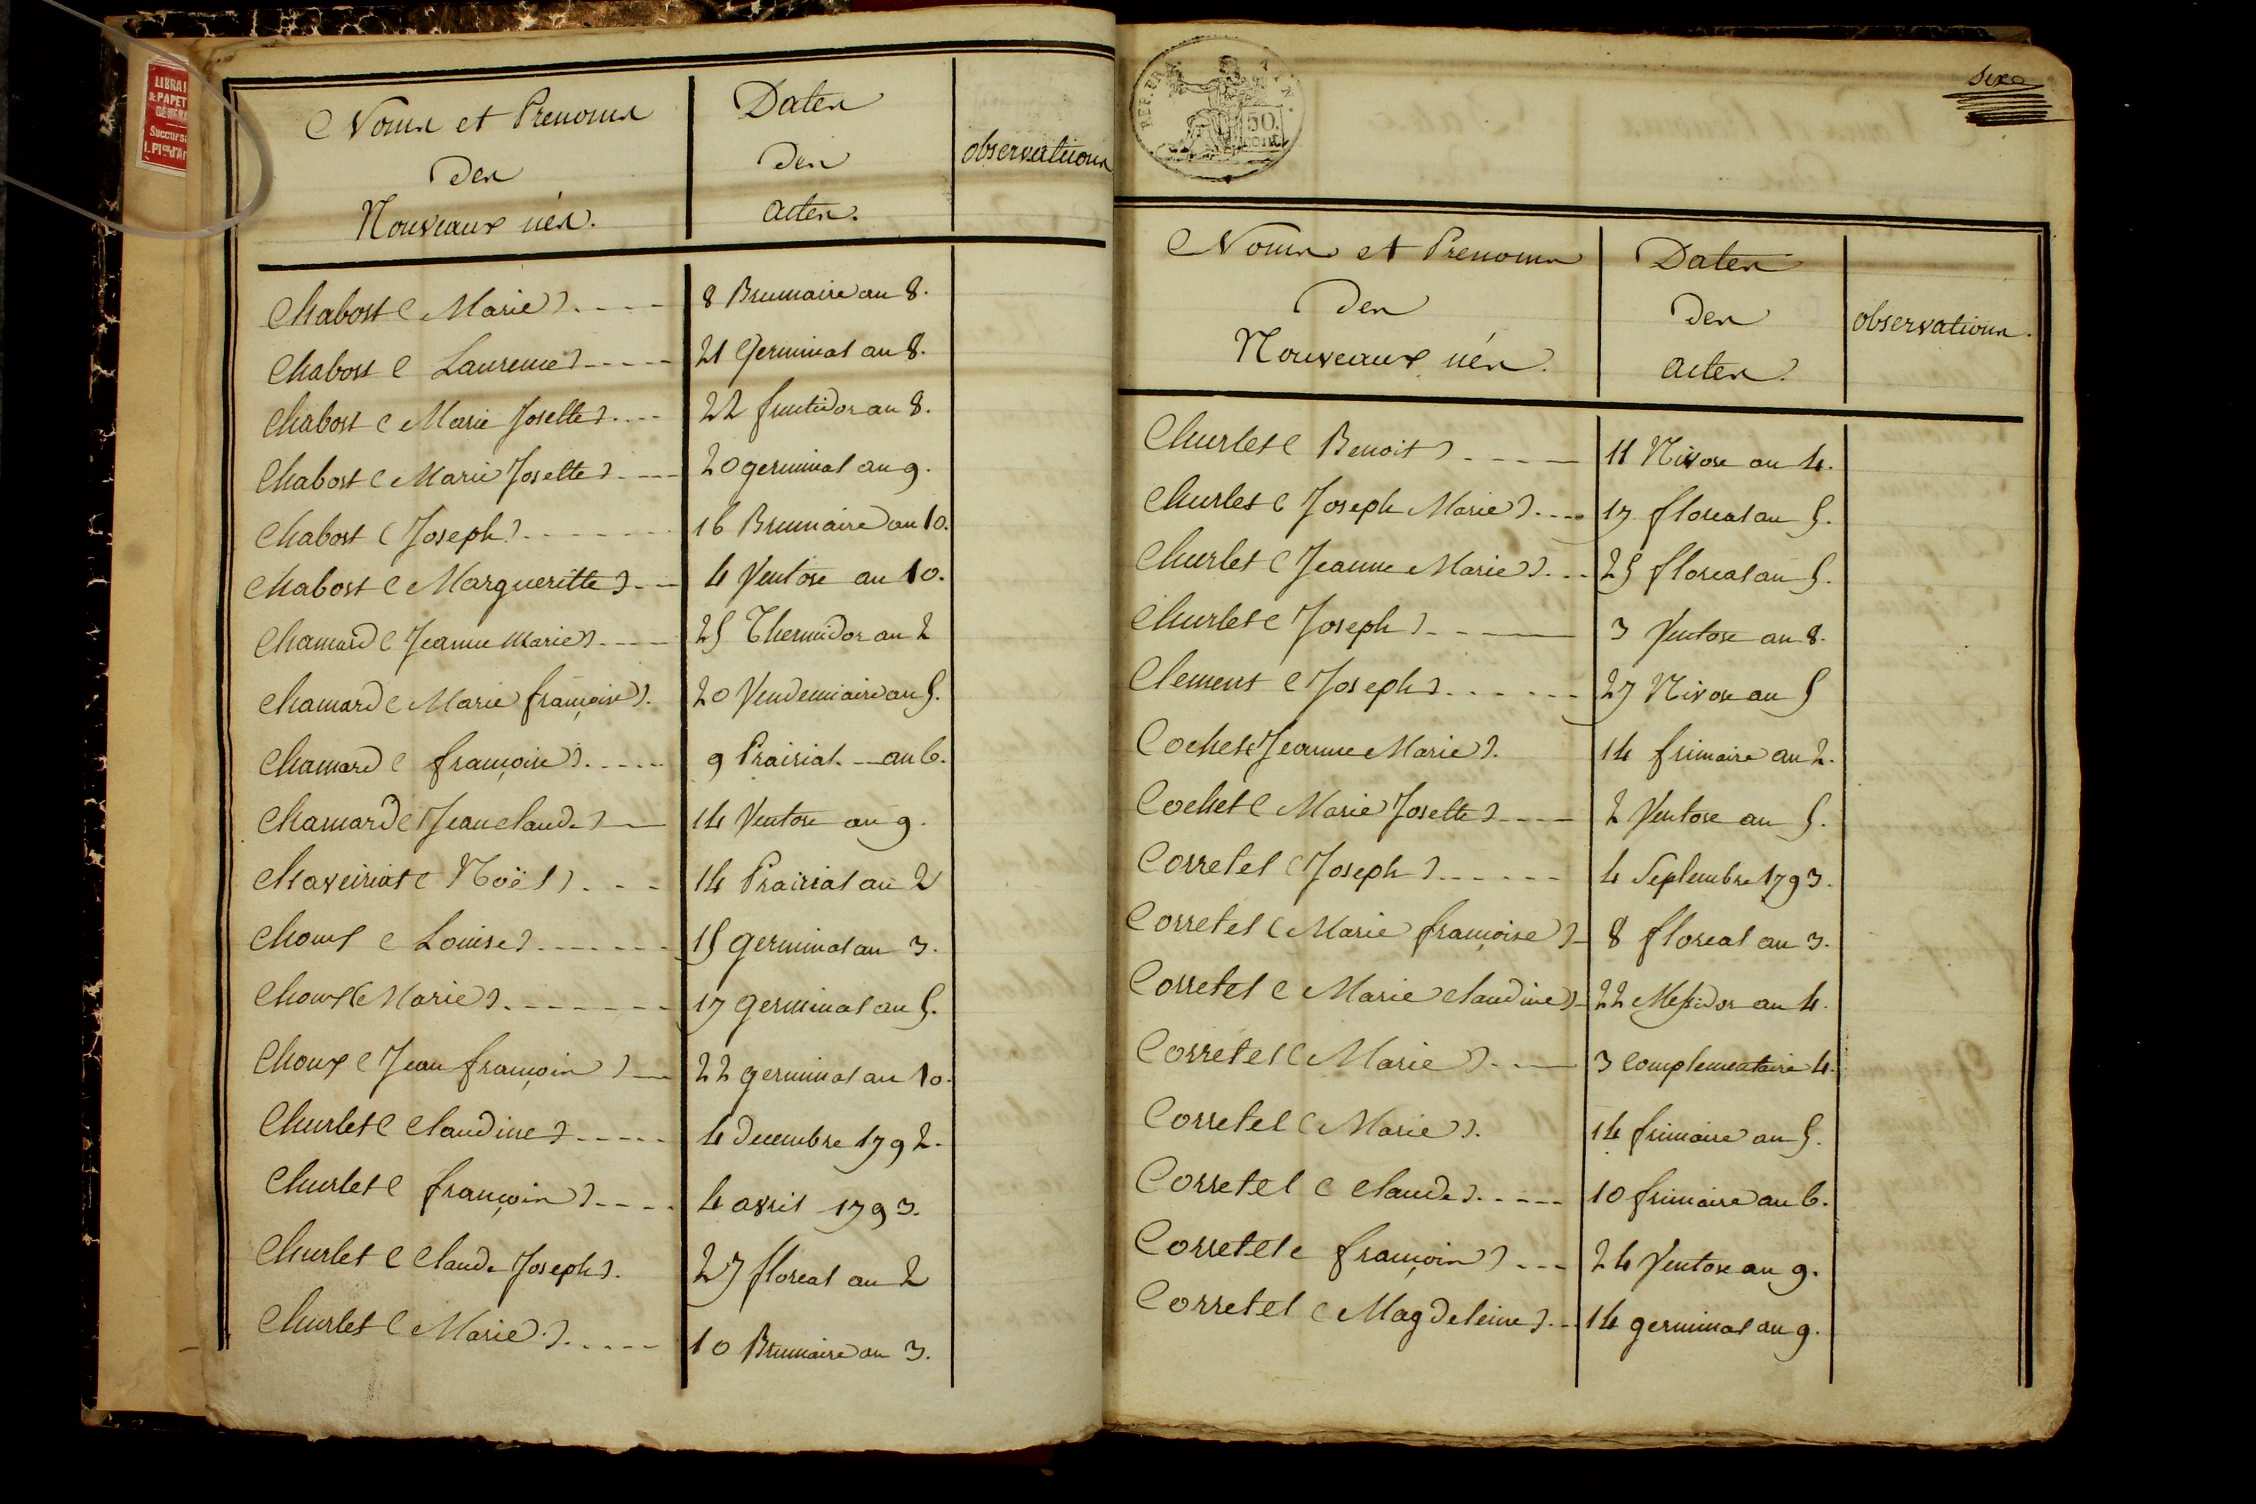 LIBRAI
& PAPET
GÉNÉRA
Success
Noms et Prenoms
des
Nouveaux nés.
Dates
des
actes.
observations
Chabost (Marie) 8 Brumaire an 8.
Chabost (Laurence) 21 Germinal an 8.
Chabost (Marie Josette) 22 fructidor an 8.
Chabost (Marie Josette) 20 germinal an 9.
Chabost (Joseph) 16 Brumaire an 10.
Chabost (Margueritte) 4 Ventose an 10.
Chamard (Jeanne Marie) 25 Thermidor an 2
Chamard (Marie françoise). 20 Vendemiaire an 5.
Chamard (françoise) 9 Prairial an 6.
Chamard (Jean claude) 14 Ventose an 9.
Chaveiriat (Noël) 14 Prairial an 2
Choux (Louise) 15 germinal an 3.
Choux (Marie) 17 germinal an 5.
Choux (Jean françois) 22 germinal an 10.
Churlet (Claudine) 4 decembre 1792.
Churlet (françois) 4 avril 1793.
Churlet (Claude Joseph). 27 floreal an 2
Churlet (Marie) 10 Brumaire an 3.
REP. FRA
50.
CENT
Six
Noms et Prenoms
des
Nouveaux nés.
Dates
des
actes.
observations.
Churlet (Benoit) 11 Nivose an 4.
Churlet (Joseph Marie) 17 floreal an 5.
Churlet (Jeanne Marie) 25 floreal an 5.
Churlet (Joseph) 3 Ventose an 8.
Clement (Joseph) 27 Nivose an 5
Cochet (Jeanne Marie). 14 frimaire an 2.
Cochet (Marie Josette) 2 Ventose an 5.
Corretel (Joseph) 4 Septembre 1793.
Corretel (Marie françoise) 8 floreal an 3.
Corretel (Marie claudine) 22 Messidor an 4.
Corretel (Marie) 3 complementaire 4.
Corretel (Marie). 14 frimaire an 5.
Corretel (Claude) 10 frimaire an 6.
Corretel (françois) 24 Ventose an 9.
Corretel (Magdeleine) 14 germinal an 9.